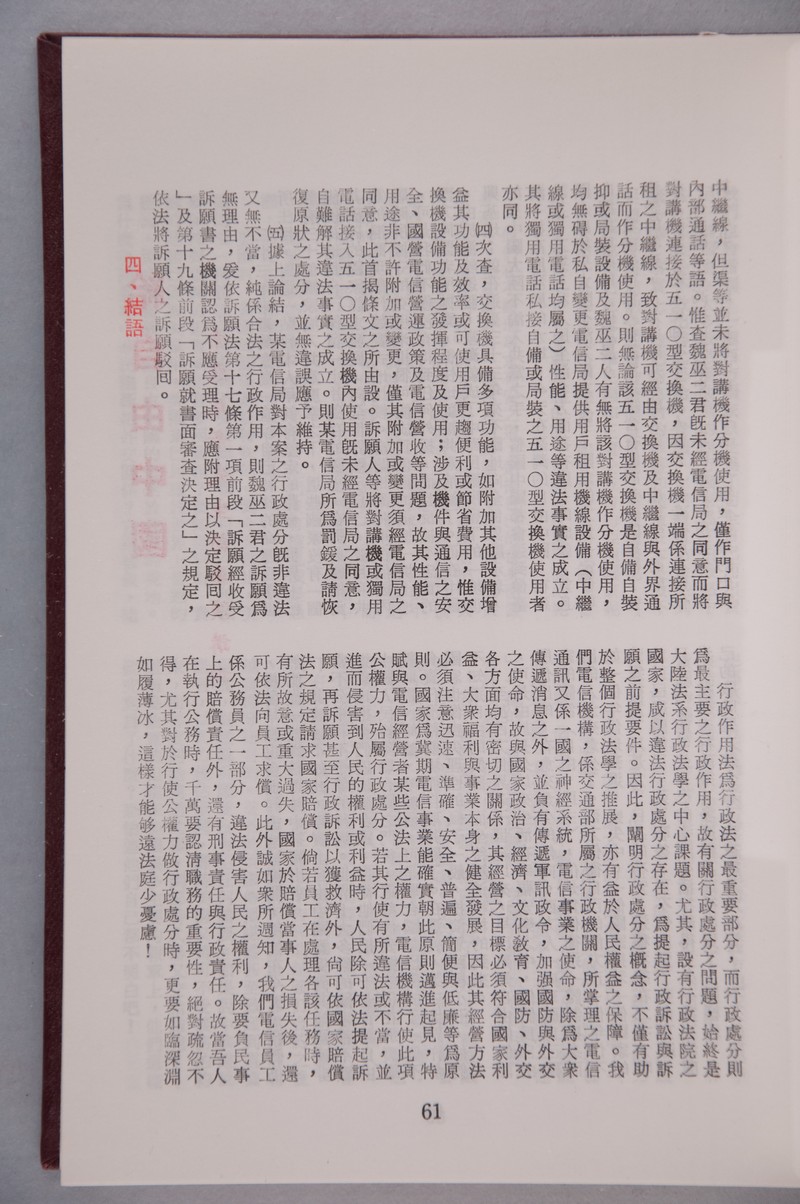 中繼線，但渠等並未將對講機作分機使用，僅作門口與
內部通話等語。惟查魏巫二君既未經電信局之同意而將
對講機連接於五一〇型交換機，因交換機一端係連接所
租之中繼線，致對講機可經由交換機及中繼線與外界通
話而作分機使用。則無論該五一〇型交換機是自備自裝
抑或局裝設備及魏巫二人有無將該對講機作分機使用，
均無碍於私自變更電信局提供用戶租用機線設備（中繼
線或獨用電話均屬之）性能、用途等違法事實之成立。
其將獨用電話私接自備或局裝之五一〇型交換機使用者
亦同。
㈣次查，交換機具備多項功能，如附加其他設備增
益其功能及效率或可使用戶更趨便利或節省費用，惟交
換機設備功能之發揮程度及使用；涉及機件與通信之安
全、國營電信營運政策及電信營收等問題，故其性能、
用途非不許附加或變更，僅其附加或變更須經電信局之
同意，此首揭條文之所由設。訴願人等將對講機或獨用
電話接入五一〇型交換機內使用既未經電信局之同意，
自難解其違法事實之成立。則某電信局所爲罰鍰及請恢
復原狀之處分，並無違誤應予維持。
㈤據上論結，某電信局對本案之行政處分既非違法
又無不當，純係合法之行政作用，則魏巫二君之訴願爲
無理由，爰依訴願法第十七條第一項前段「訴願經收受
訴願書之機關認爲不應受理時，應附理由以決定駁回之
」及第十九條前段「訴願就書面審查決定之」之規定，
依法將訴願人之訴願駁回。
四、結語
行政作用法爲行政法之最重要部分，而行政處分則
爲最主要之行政作用，故有關行政處分之問題，始終是
大陸法系行政法學之中心課題。尤其，設有行政法院之
國家，咸以違法行政處分之存在，爲提起行政訴訟與訴
願之前提要件。因此，闡明行政處分之概念，不僅有助
於整個行政法學之推展，亦有益於人民權益之保障。我
們電信機構，係交通部所屬之行政機關，所掌理之電信
通訊又係一國之神經系統，電信事業之使命，除爲大衆
傳遞消息之外，並負有傳遞軍訊政令，加强國防與外交
之使命，故與國家政治、經濟、文化教育、國防、外交
各方面均有密切之關係，其經營之目標必須符合國家利
益、大衆福利與事業本身之健全發展，因此其經營方法
必須注意迅速、準確、安全、普遍、簡便與低廉等爲原
則。國家爲冀期電信事業能確實朝此原則邁進起見，特
賦與電信經營者某些公法上之權力，電信機構行使此項
公權力，殆屬行政處分。若其行使有所違法或不當，並
進而侵害到人民的權利或利益時，人民除可依法提起訴
願，再訴願甚至行政訴訟以獲救濟外，尙可依國家賠償
法之規定請求國家賠償。倘若員工在處理各該任務時，
有所故意或重大過失，國家於賠償當事人之損失後，還
可依法向員工求償。此外誠如衆所週知，我們電信員工
係公務員之一部分，違法侵害人民之權利，除要負民事
上的賠償責任外，還有刑事責任與行政責任。故當吾人
在執行公務時，千萬要認清職務的重要性，絕對疏忽不
得，尤其對於行使公權力做行政處分時，更要如臨深淵
如履薄冰，這樣才能够遠法庭少憂慮！
61